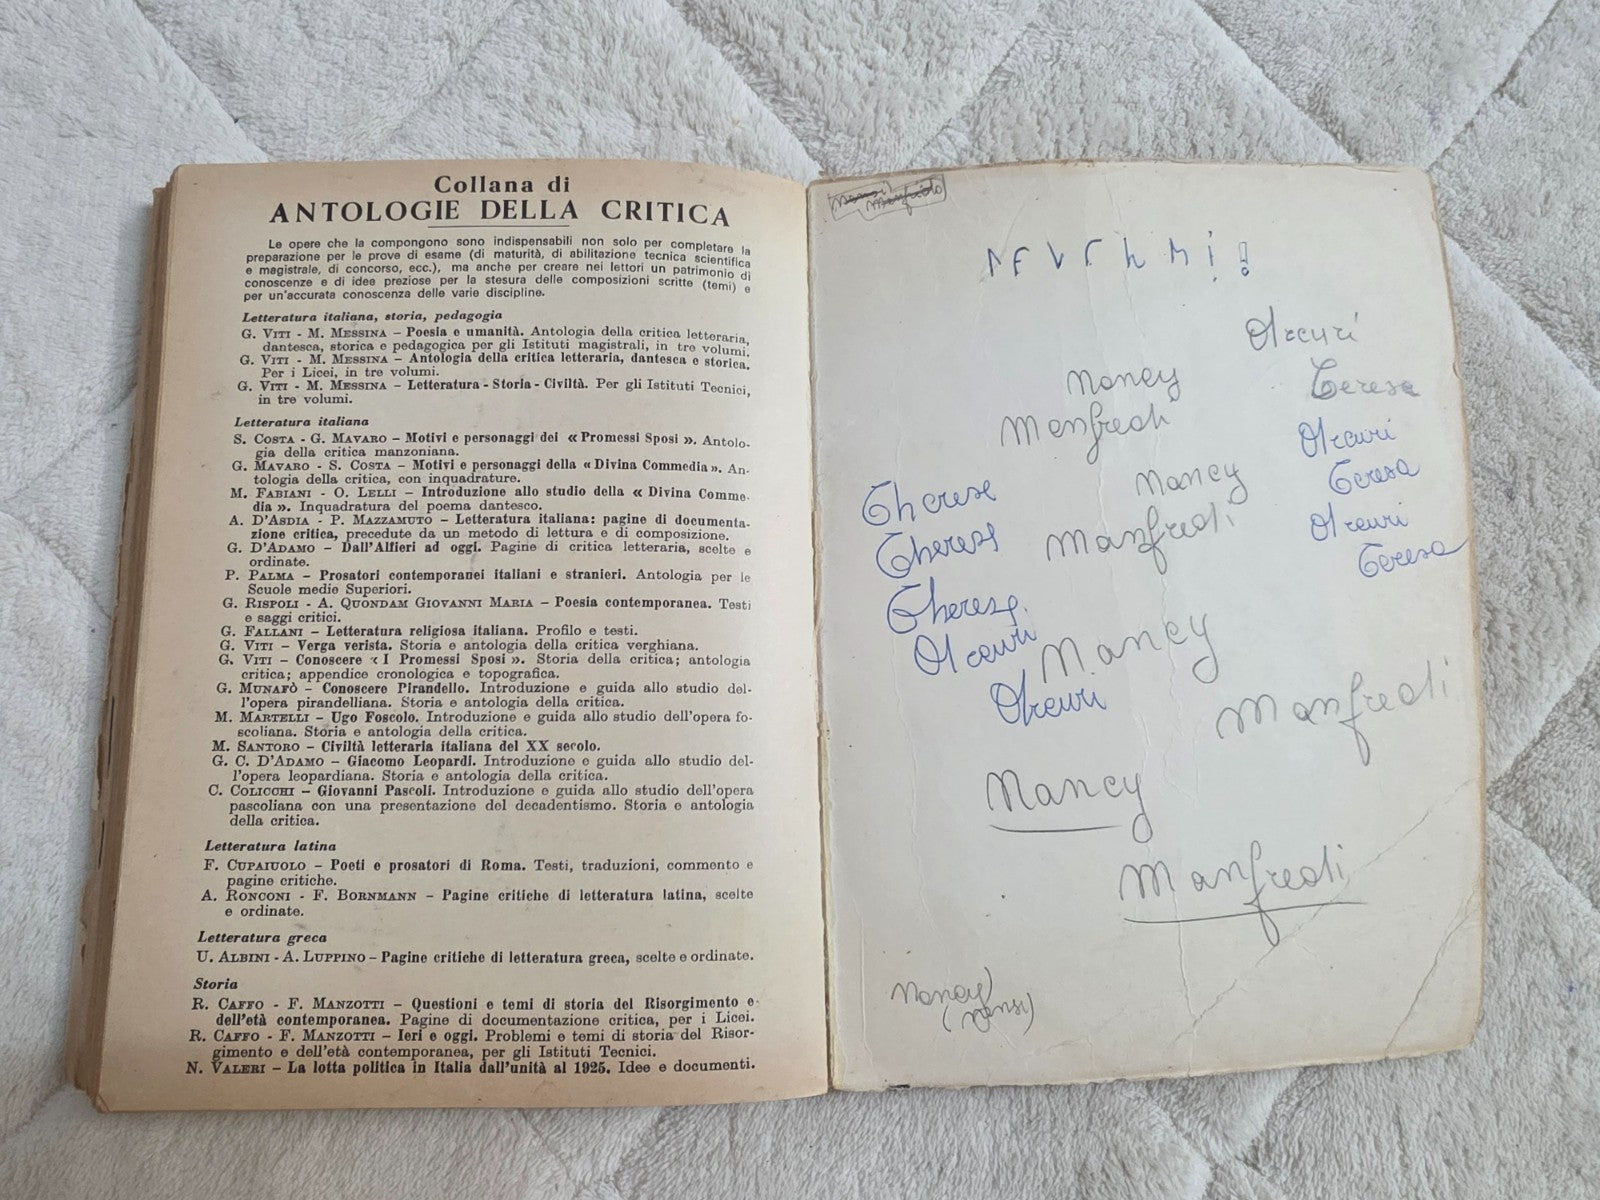 Collana di
ANTOLOGIE DELLA CRITICA
Le opere che la compongono sono indispensabili non solo per completare la
preparazione per le prove di esame (di maturità, di abilitazione tecnica scientifica
e magistrale, di concorso, ecc.), ma anche per creare nei lettori un patrimonio di
conoscenze e di idee preziose per la stesura delle composizioni scritte (temi) e
per un'accurata conoscenza delle varie discipline.
Letteratura italiana, storia, pedagogia
G. VITI - M. MESSINA – Poesia e umanità. Antologia della critica letteraria,
dantesca, storica e pedagogica per gli Istituti magistrali, in tre volumi.
G. VITI - M. MESSINA – Antologia della critica letteraria, dantesca e storica.
Per i Licei, in tre volumi.
G. VITI - M. MESSINA – Letteratura - Storia - Civiltà. Per gli Istituti Tecnici,
in tre volumi.
Letteratura italiana
S. COSTA - G. MAVARO – Motivi e personaggi dei « Promessi Sposi ». Antolo-
gia della critica manzoniana.
G. MAVARO - S. COSTA – Motivi e personaggi della « Divina Commedia ». An-
tologia della critica, con inquadrature.
M. FABIANI - O. LELLI – Introduzione allo studio della « Divina Comme-
dia ». Inquadratura del poema dantesco.
A. D'ASDIA - P. MAZZAMUTO – Letteratura italiana: pagine di documenta-
zione critica, precedute da un metodo di lettura e di composizione.
G. D'ADAMO – Dall'Alfieri ad oggi. Pagine di critica letteraria, scelte e
ordinate.
P. PALMA – Prosatori contemporanei italiani e stranieri. Antologia per le
Scuole medie Superiori.
G. RISPOLI - A. QUONDAM GIOVANNI MARIA – Poesia contemporanea. Testi
e saggi critici.
G. FALLANI – Letteratura religiosa italiana. Profilo e testi.
G. VITI – Verga verista. Storia e antologia della critica verghiana.
G. VITI – Conoscere « I Promessi Sposi ». Storia della critica; antologia
critica; appendice cronologica e topografica.
G. MUNAFÒ – Conoscere Pirandello. Introduzione e guida allo studio del-
l'opera pirandelliana. Storia e antologia della critica.
M. MARTELLI – Ugo Foscolo. Introduzione e guida allo studio dell'opera fo-
scoliana. Storia e antologia della critica.
M. SANTORO – Civiltà letteraria italiana del XX secolo.
G. C. D'ADAMO – Giacomo Leopardi. Introduzione e guida allo studio del-
l'opera leopardiana. Storia e antologia della critica.
C. COLICCHI – Giovanni Pascoli. Introduzione e guida allo studio dell'opera
pascoliana con una presentazione del decadentismo. Storia e antologia
della critica.
Letteratura latina
F. CUPAIUOLO – Poeti e prosatori di Roma. Testi, traduzioni, commento e
pagine critiche.
A. RONCONI - F. BORNMANN – Pagine critiche di letteratura latina, scelte
e ordinate.
Letteratura greca
U. ALBINI - A. LUPPINO – Pagine critiche di letteratura greca, scelte e ordinate.
Storia
R. CAFFO - F. MANZOTTI – Questioni e temi di storia del Risorgimento e
dell'età contemporanea. Pagine di documentazione critica, per i Licei.
R. CAFFO - F. MANZOTTI – Ieri e oggi. Problemi e temi di storia del Risor-
gimento e dell'età contemporanea, per gli Istituti Tecnici.
N. VALERI – La lotta politica in Italia dall'unità al 1925. Idee e documenti.
Arcuri
Teresa
Nancy
Manfredi
Arcuri
Teresa
Nancy
Manfredi
Arcuri
Teresa
Therese
Therese
Therese
Arcuri
Arcuri
Nancy
Manfredi
Nancy
Manfredi
Nancy
(Nansi)